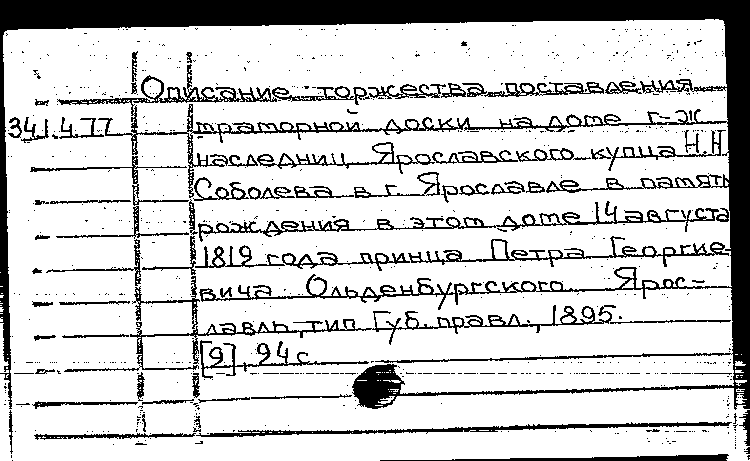 Описание торжества поставления
341.4.77 траторной доски на доме г-ж
наследниц Ярославского купца Н.Н
Соболева в г. Ярославле в память
рождения в этом доме 14 августа
1819 года принца Петра Георгие-
вича Ольденбургского. Ярос-
лавль, тип. Губ. правл., 1895.
[9], 94 с.